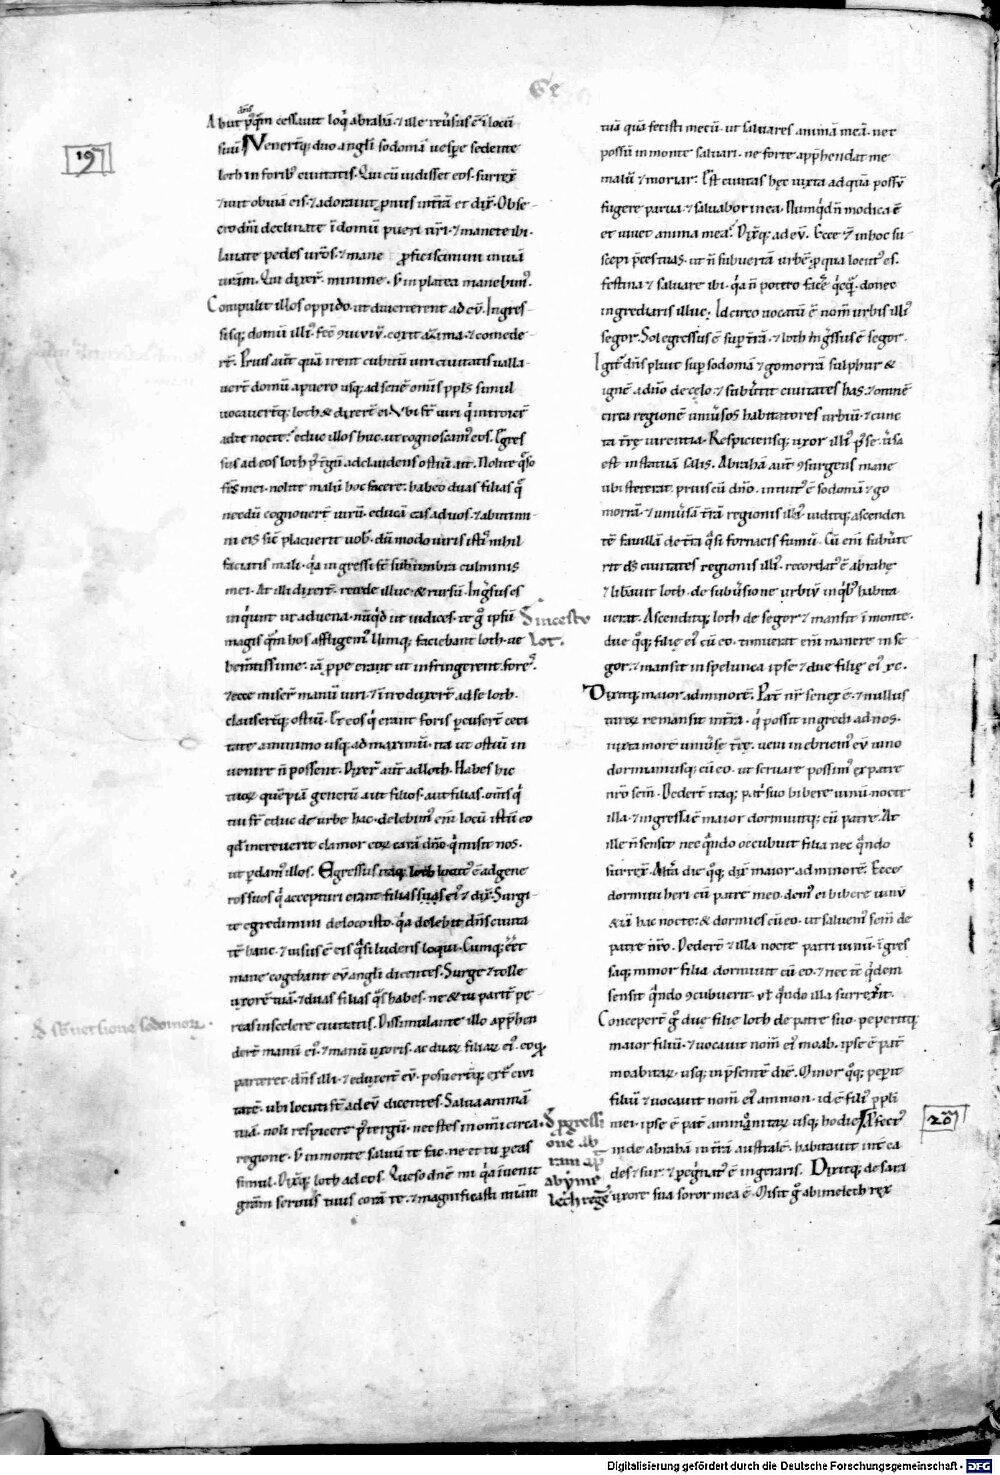 Ge
dñs
Abiit pꝰq̃m cessauit loq̃ abrahã. ⁊ ille reũsus ẽ ĩ locũ
suũ. Venerꝶ̃q; duo angli sodomã uespe sedente
loth in forib; ciuitatis. Qui cũ uidisset eos. surrex̃
⁊ iuit obuiã eis. ⁊ adorauit pnus in t̃rã et dix̃. Obse-
cro dñi declinate ĩ domũ pueri ñri. ⁊ manete ibi.
Lauate pedes uros. ⁊ mane proficiscimini in uiã
uram. Qui dixer̃. minime. s; in platea manebimꝰ.
Compulit illos oppido. ut diuerterent ad eũ. Ingres-
sisq; domũ illiꝰ. fec̃ ꝯuiuiũ. coxit azima. ⁊ comede-
rt̃. Prius aũt quã irent cubitũ uiri ciuitatis ualla-
uert̃ domũ a puero usq; ad senẽ omĩs ppls simul
uocauert̃q; loth & dixert̃ ei. Vbi s̃t uiri q̃ introier̃
ad te nocte? educ illos huc. ut cognoscamꝰ eos. Egres
sus ad eos loth pꝰ t̃gũ adclaudens ostiũ. ait. Nolite q̃so
frs̃ mei. nolite malũ hoc facere. habeo duas filias q̃
necdũ cognouert̃ uirũ. educã eas ad uos. ⁊ abutimi-
ni eis sic̃ placuerit uob̃. dũmodo uiris istiꝰ nihil
faciatis mali. q̃a ingressi s̃t sub umbra culminis
mei. At illi dixert̃. recede illuc. & rursũ. Ingressus es
inquiunt ut aduena. nũq̃d ut iudices. te ğ ipsũ
magis q̃m hos affligemꝰ. Uimq; faciebant loth. ue
hem̃tissime. iã ppe erant ut infringerent fores.
⁊ ecce miser̃ manũ uiri. ⁊ ĩtroduxert̃ ad se loth.
clauserꝶ̃q; ostiũ. Et eos q̃ erant foris pcusert̃ ceci
tate a minimo usq; ad maximũ. ita ut ostiũ in
uenire ñ possent. Dixer̃ aũt ad loth. Habes hic
tuoꝝ quẽpiã generũ aut filios. aut filias. om̃s q̃
tui s̃t educ de urbe hac. delebimꝰ eni locũ istũ eo
qd̃ increuerit clamor eoꝝ corã dño. q̃ misit nos.
ut pdamꝰ illos. Egressus itaq; loth locutꝰ ẽ ad gene
ros suos q̃ accepturi erant filias suas eiꝰ ⁊ dix̃. Surgi
te egredimini de loco isto. q̃a delebit dñs ciuita
tẽ hanc. ⁊ uisus ẽ eis q̃si ludens loqui. Cumq; eẽt
mane cogebant eũ angli dicentes. Surge ⁊ tolle
uxorẽ tuã. ⁊ duas filias q̃s habes. ne & tu parit̃ pe-
reas in scelere ciuitatis. Dissimulante illo apprhen
dert̃ manũ eiꝰ. ⁊ manũ uxoris. ac duaꝝ filiaꝝ eiꝰ. eoq;
parceret dñs illi. ⁊ eduxert̃ eũ. posuerꝶ̃q; ext̃ ciui
tatẽ. ubi locuti s̃t ad eũ dicentes. Salua animã
tuã. noli respicere pꝰ tergũ. nec stes in omni circa
regione. s; in monte saluũ te fac. ne et tu pereas
simul. Dix̃q; loth ad eos. Queso dñe mi q̃a ĩuenit
gram̃ seruus tuus corã te. ⁊ magnificasti miãm
tuã quã fecisti mecũ. ut saluares animã meã. nec
possũ in monte saluari. ne forte apphendat me
malũ ⁊ moriar. Est ciuitas hęc iuxta ad quã possũ
fugere parua. ⁊ saluabor in ea. Numq̃d ñ modica ẽ
et uiuet anima mea? Dix̃q; ad eũ. Ecce ⁊ĩ in hoc su
scepi p̃ces tuas. ut ñ subuertã urbẽ p qua locutꝰ es.
festina ⁊ saluare ibi. q̃a ñ potero facẽ q̃cq̃. donec
ingrediaris illuc. Idcirco uocatũ ẽ nom̃ urbis illiꝰ
segor. Sol egressus ẽ sup t̃rã. ⁊ loth ingressus ẽ segor.
Igit̃ dñs pluit sup sodomã ⁊ gomorrã sulphur &
ignẽ a dño de celo. ⁊ subũtit ciuitates has. ⁊ omnẽ
circa regionẽ uniũsos habitatores urbiũ. ⁊ cunc
ta t̃rę uirentia. Respiciensq; uxor illiꝰ pꝰ se. ũsa
est in statuã salis. Abrahã aũt ꝯsurgens mane
ubi steterat. prius cũ dño. intuitꝰ ẽ sodomã ⁊ go
morrã. ⁊ uniũsã t̃rã regionis illiꝰ. uiditq; ascenden
tẽ fauillã de t̃ra q̃si fornacis fumũ. Cũ eni subũte
rit ds̃ ciuitates regionis illiꝰ. recordatꝰ ẽ abrahę
⁊ lib̃auit loth. de subũsione urbiũ in q̃b; habita
uerat. Ascenditq; loth de segor ⁊ mansit ĩ monte.
due q̃q; filię eiꝰ cũ eo. timuerat eni manere in se
gor. ⁊ mansit in spelunca ipse ⁊ due filię eiꝰ xc.
Dixitq; maior ad minorẽ. Pat̃ nr̃ senex ẽ. ⁊ nullus
uiroꝝ remansit in t̃ra. q̃ possit ingredi ad nos.
iuxta morẽ uniũsę t̃rę. ueni inebriemꝰ eũ uino
dormiamusq; cũ eo. ut seruare possimꝰ ex patre
nr̃o sem̃. Dedert̃ itaq; patri suo bibere uinũ nocte
illa. ⁊ ingressa ẽ maior dormiuitq; cũ patre. At
ille ñ sensit nec q̃ndo occubuit filia nec q̃ndo
surrex̃. Alt̃a die q̃q; dix̃ maior ad minorẽ. Ecce
dormiui heri cũ patre meo. demꝰ ei bibere uinũ
& iã hac nocte. & dormies cũ eo. ut saluemꝰ sem̃ de
patre nr̃o. Dedert̃ ⁊ illa nocte patri uinũ. ĩgres
saq; minor filia dormiuit cũ eo. ⁊ nec tc̃ q̃dem
sensit q̃ndo ꝯcubuerit. ul̃ q̃ndo illa surrexerit.
Concepert̃ ğ due filię loth de patre suo. peperitq;
maior filiũ. ⁊ uocauit nom̃ eiꝰ moab. ipse ẽ pat̃
moabitaꝝ. usq; in p̃sentẽ diẽ. Minor q̃q; peperit
filiũ ⁊ uocauit nom̃ eiꝰ ammon. id ẽ filiꝰ ppli
mei. ipse ẽ pat̃ ammanitaꝝ usq; hodie. Pfectꝰ
inde abrahã in t̃rã australẽ. habitauit int̃ ca
des ⁊ sur. ⁊ pegrinatꝰ ẽ in geraris. Dixitq; de sara
uxore sua soror mea ẽ. Misit ğ abimelech rex
19m
De incestu
Lot.
De subuersione sodomoꝝ.
De pgressi
one ab
ram ap̃
abyme
lech regẽ
20m
Digitalisierung gefördert durch die Deutsche Forschungsgemeinschaft - DFG